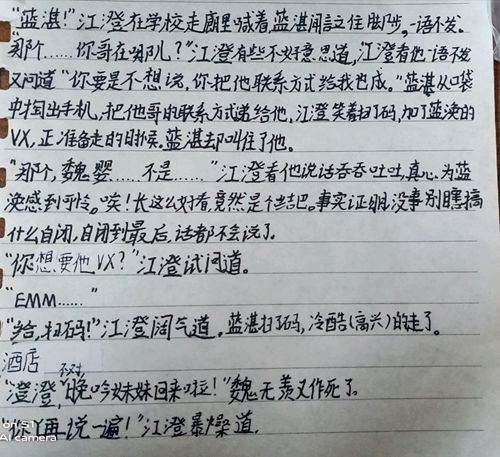 "蓝湛!"江澄在学校走廊里喊着,蓝湛闻言住脚步。一语不发。
"那个……你哥在哪儿?"江澄有些不好意思道,江澄看他一语不发
又问道"你要是不想说,你把他联系方式给我也成。"蓝湛从口袋
中掏出手机,把他哥的联系方式递给他,江澄笑着扫了码,加了蓝涣的
VX,正准备走的时候。蓝湛却叫住了他。
"那个,魏婴……不是……"江澄看他说话吞吞吐吐,真心为蓝
涣感到可怜。唉!长这么好看,竟然是个结巴。事实证明,没事别瞎搞
什么自闭,自闭到最后,话都不会说了。
"你想要他VX?"江澄试问道。
"EMM……"
"给,扫码!"江澄阔气道。蓝湛扫了码,冷酷(高兴)的走了。
酒店
"澄澄,晚吟妹妹回来啦!"魏无羡又作死了。
"你再说一遍!"江澄暴燥道.
on S1
AI camera